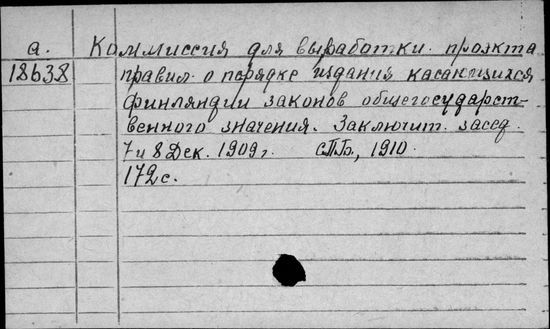 а. Коммиссия для выработки проэкта
18638 правил о порядке издания касающихся
финляндии законов общегосударст-
венного значения. Заключит. засед.
7 и 8 Дек. 1909 г. СПБ., 1910.
172 с.